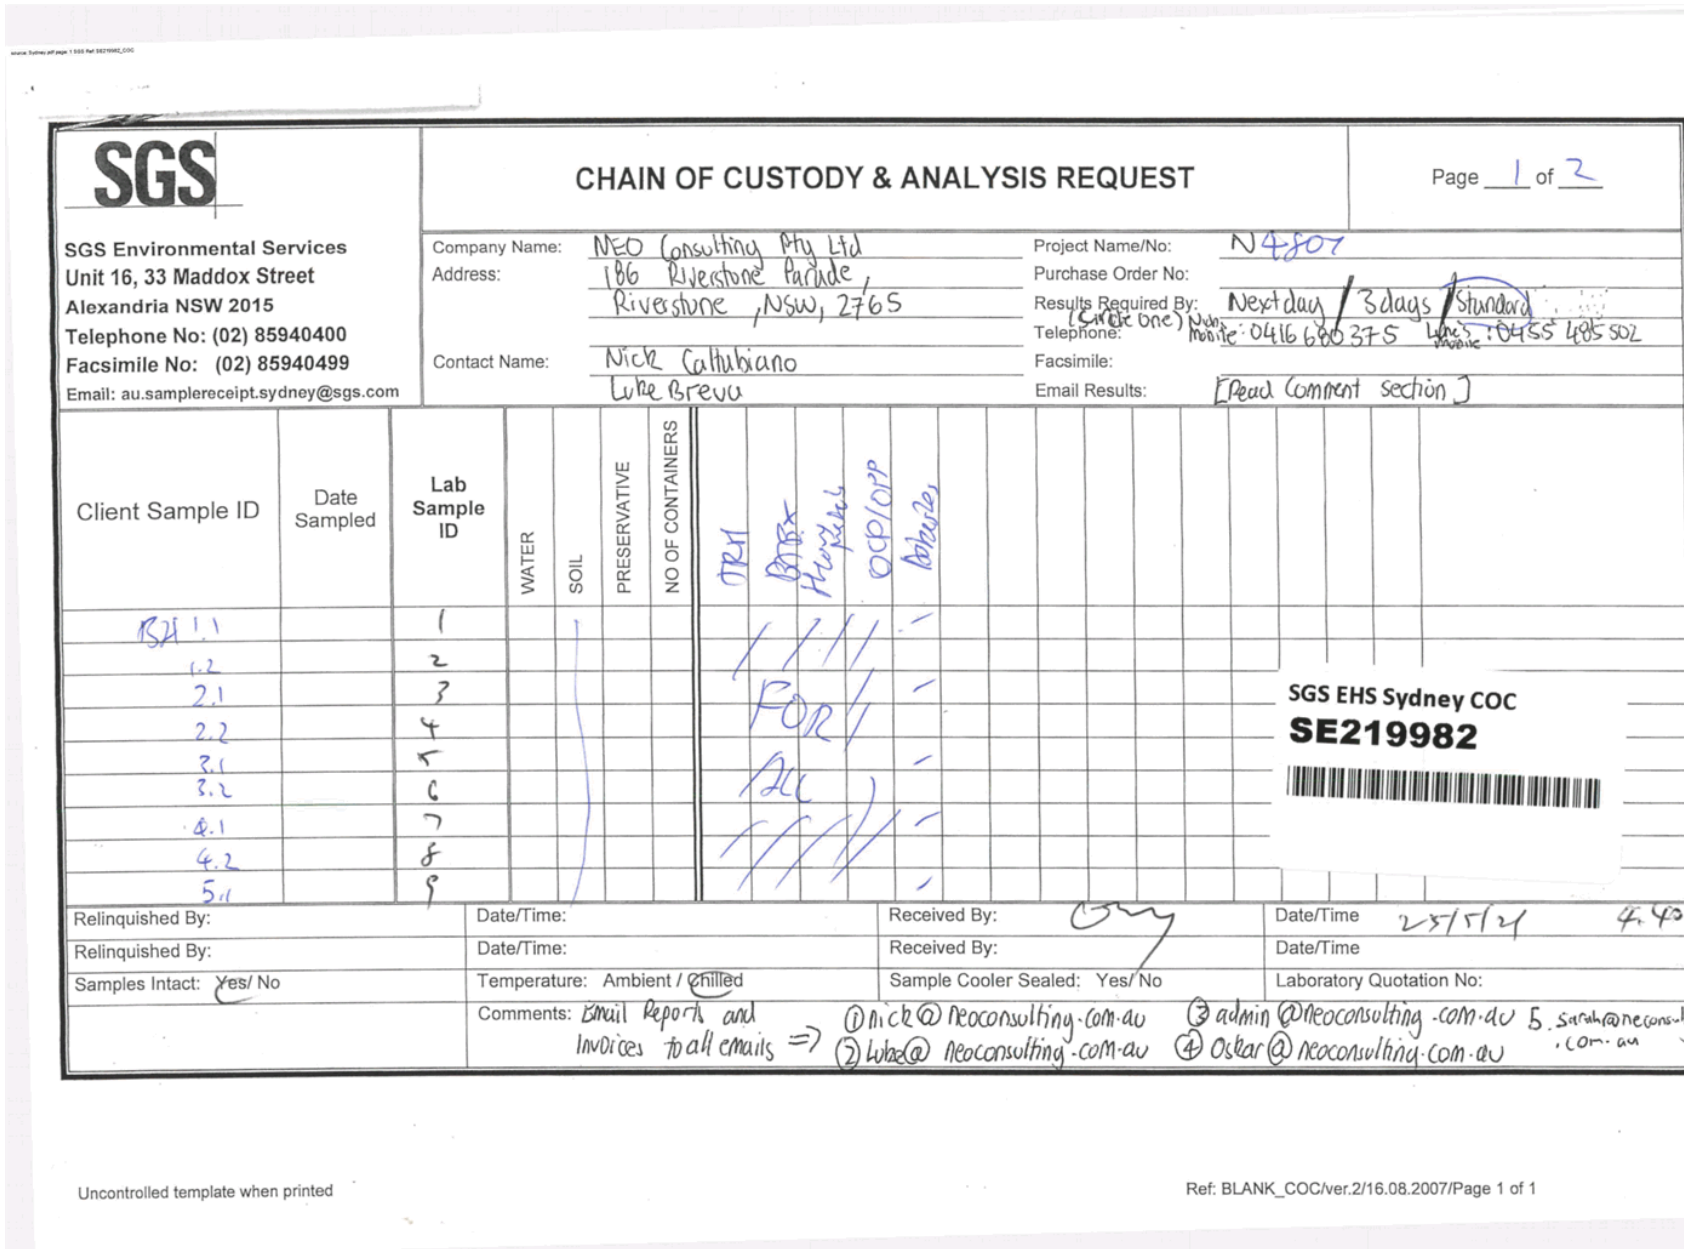 source: Sydney.pdf page: 1 SGS Ref: SE219982_COC
SGS
CHAIN OF CUSTODY & ANALYSIS REQUEST
Page 1 of 2
SGS Environmental Services
Unit 16, 33 Maddox Street
Alexandria NSW 2015
Telephone No: (02) 85940400
Facsimile No: (02) 85940499
Email: au.samplereceipt.sydney@sgs.com
Company Name: NEO Consulting Pty Ltd
Address: 186 Riverstone Parade,
Riverstone, NSW, 2765
Contact Name: Nick Caltabiano
Luke
Project Name/No: N4807
Purchase Order No:
Results Required By: Next day / 3 days / Standard
(Circle one)
Telephone: Mobile: 0416 680 375 Luke's Mobile: 0455 485 502
Facsimile:
Email Results: [Read Comment section]
Client Sample ID Date Sampled Lab Sample ID WATER SOIL PRESERVATIVE NO OF CONTAINERS TRH BTEX Heavy Metals OCP/OPP Asbestos
BH 1.1 1
1.2 2
2.1 3
2.2 4
3.1 5
3.2 6
4.1 7
4.2 8
5.1 9
FOR
ALL
SGS EHS Sydney COC
SE219982
Relinquished By: Date/Time: Received By: Date/Time 25/5/21 4.40
Relinquished By: Date/Time: Received By: Date/Time
Samples Intact: Yes/ No Temperature: Ambient / Chilled Sample Cooler Sealed: Yes/ No Laboratory Quotation No:
Comments: Email Reports and ① nick@neoconsulting.com.au ③ admin@neoconsulting.com.au 5. sarah@neconsul
Invoices to all emails => ② Luke@neoconsulting.com.au ④ Oskar@neoconsulting.com.au .com.au
Uncontrolled template when printed
Ref: BLANK_COC/ver.2/16.08.2007/Page 1 of 1